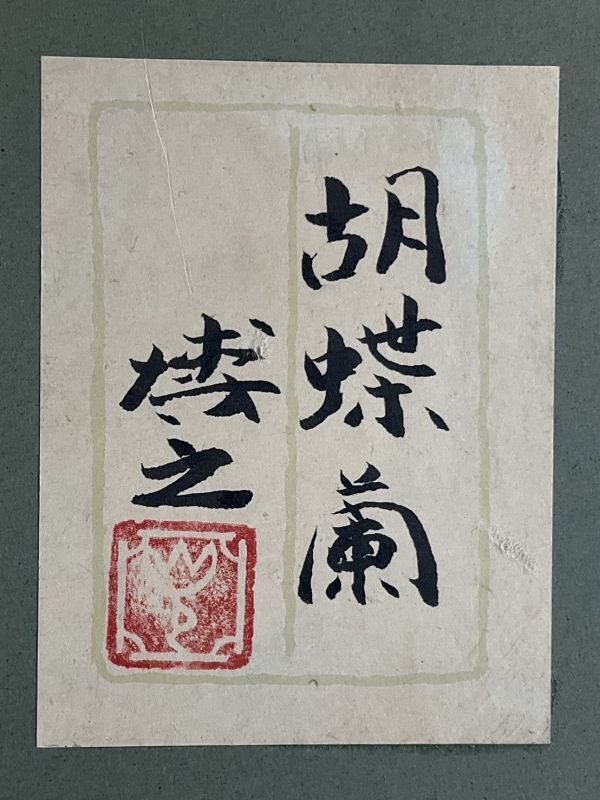 胡蝶蘭
之